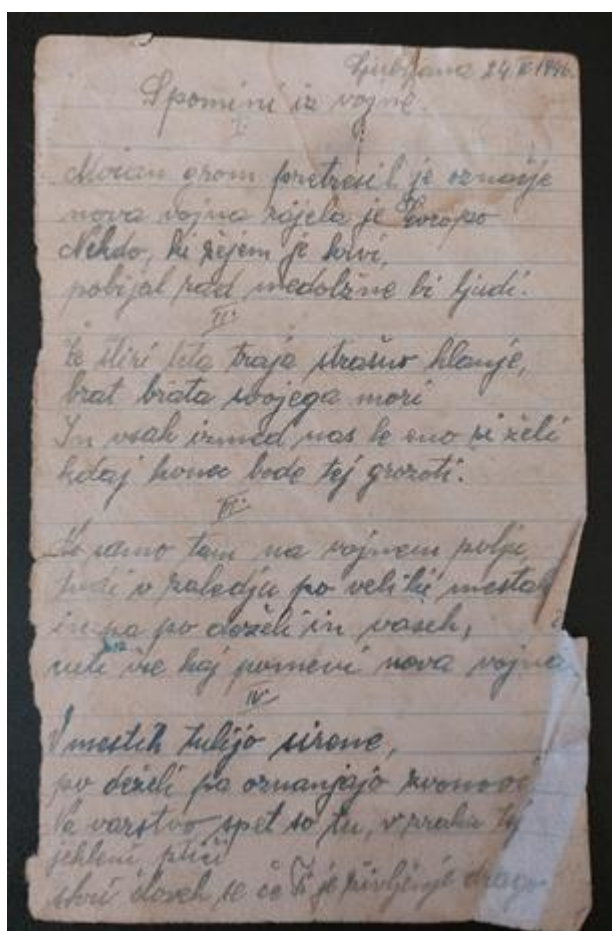 Ljubljana 24. 1946.
Spomini iz vojne.
I.
Močan grom pretresil je ozračje
nova vojna zajela je Evropo
Nekdo, ki žejen je krvi,
pobijal rad nedolžne bi ljudi.
II.
Že štiri leta traja strašno klanje,
brat brata svojega mori
In vsak izmed nas le eno si želi
kdaj konec bode tej grozoti.
III.
Ne samo tam na vojnem polju,
tudi v zaledju po veliki mestah
in pa po deželi in vaseh,
vse kaj pomeni nova vojna
IV.
V mestih tulijo sirene,
po deželi pa oznanjajo zvonovi
varstvo spet so tu, v zraku ti
jekleni ptiči
skri človek se če Ti je življenje drago